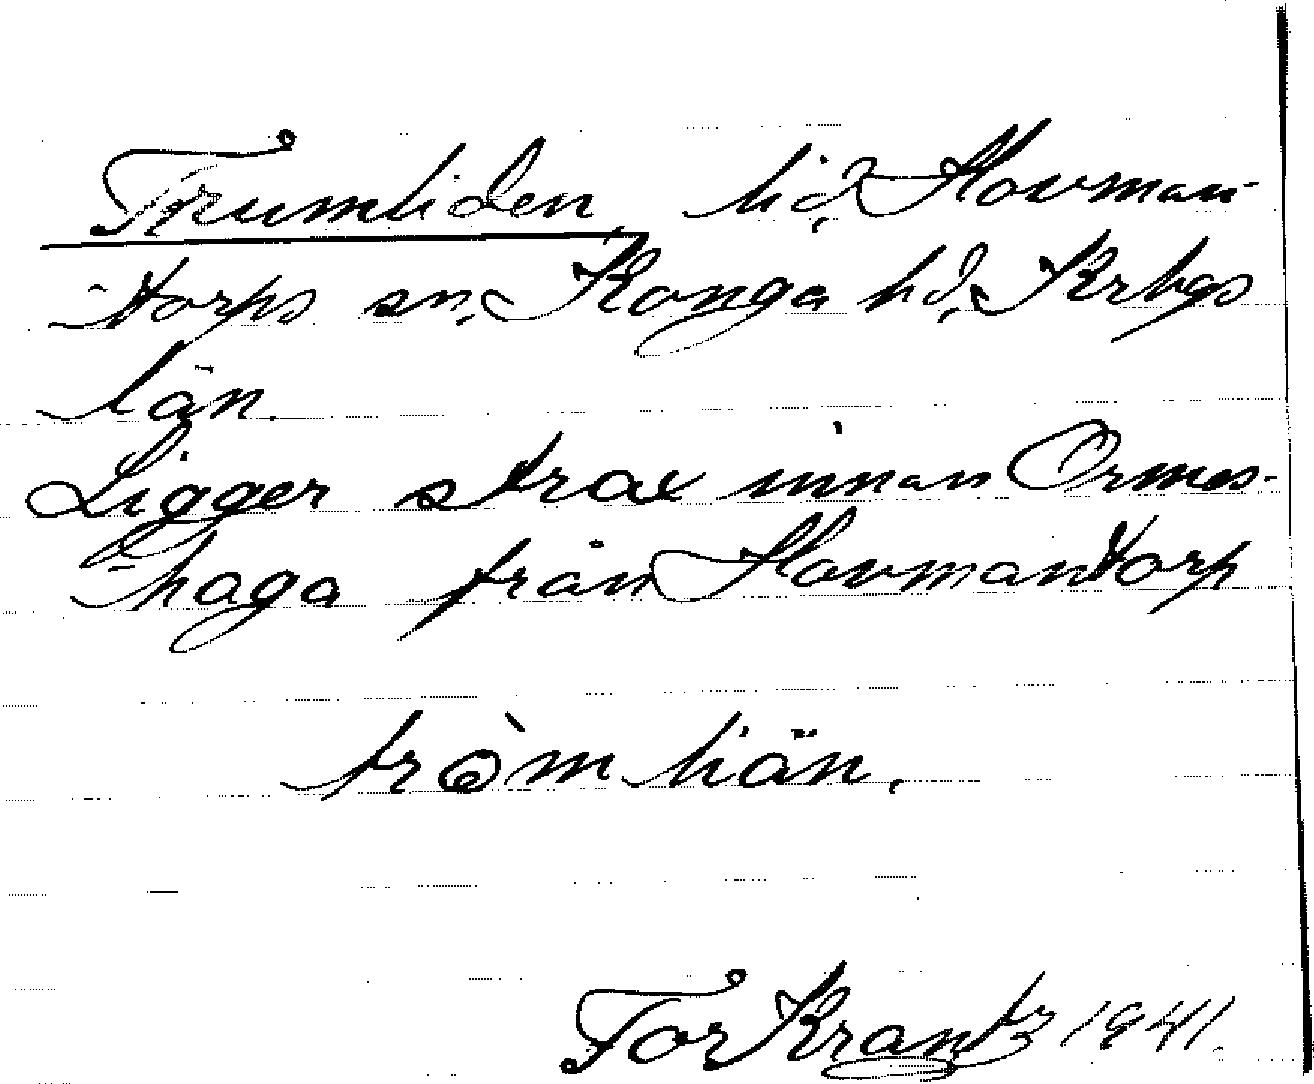 Trumliden, lid, Hovman-
torps sn, Konga hd, Krbgs
län.
Ligger strax innan Ormes-
haga från Hovmantorp
tròmliän,
Tor Krantz 1941.